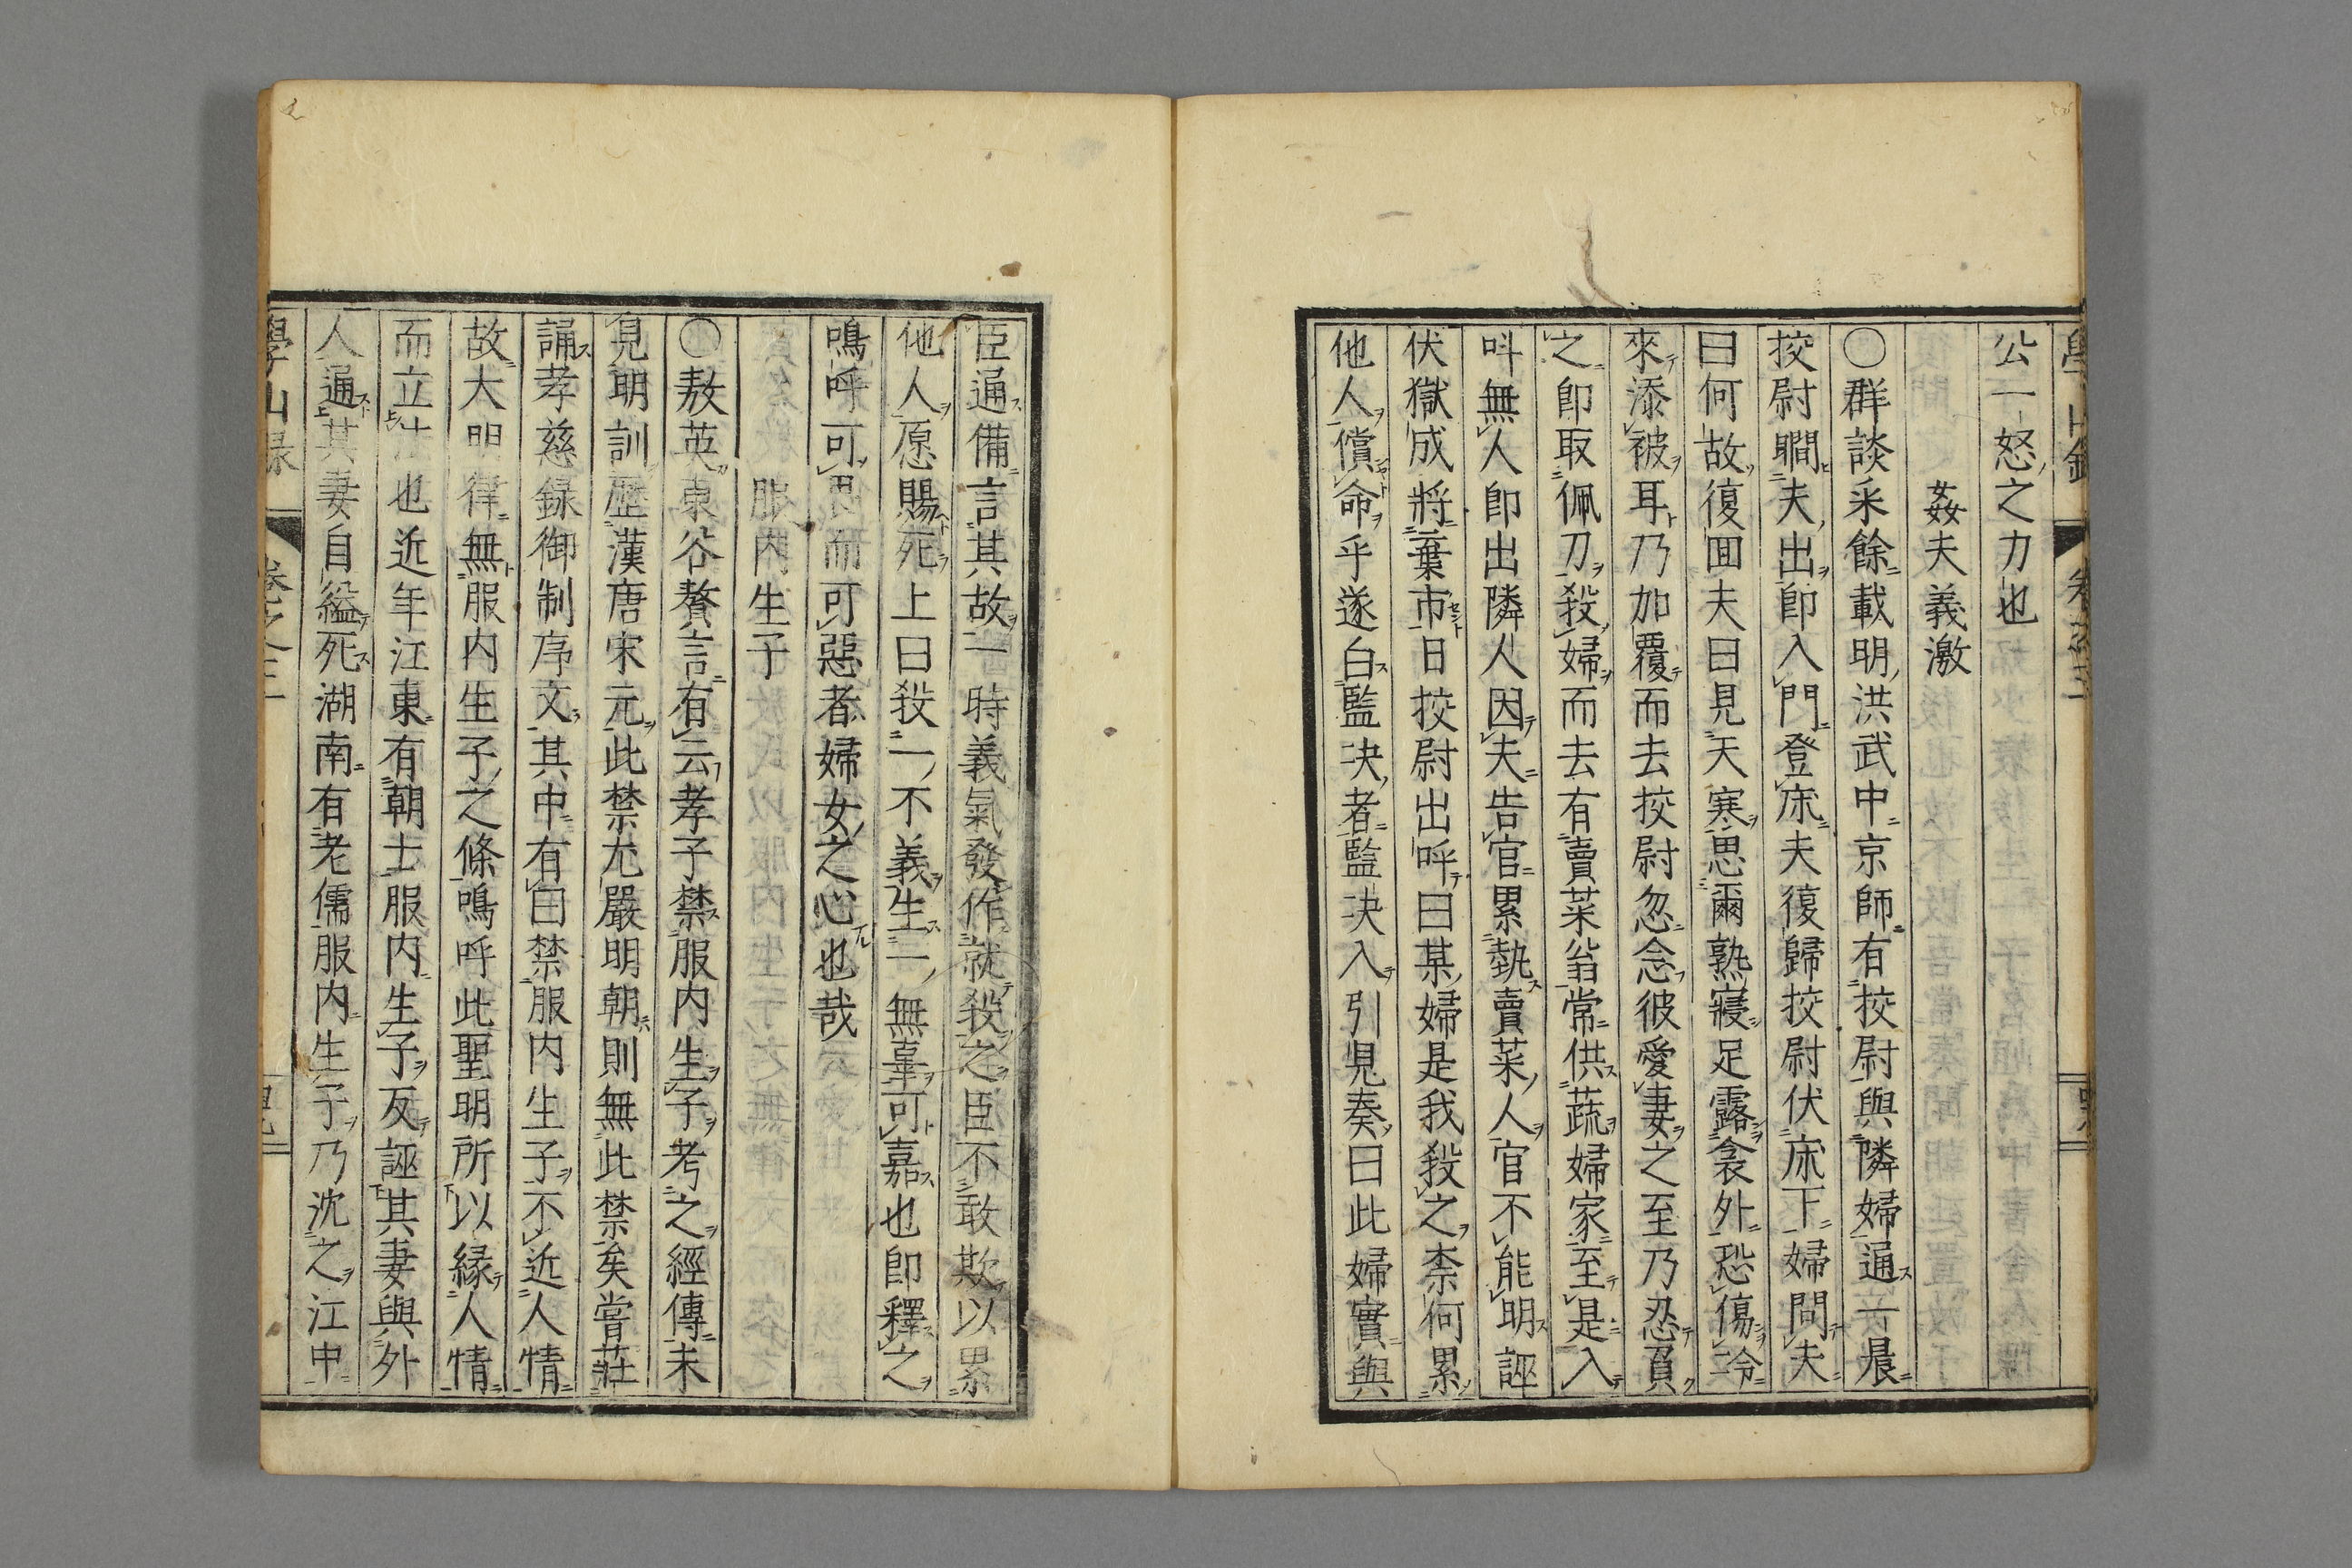 公一怒之力也
姦夫義激
〇群談采餘載明洪武中京師有挍尉與隣婦通一晨
挍尉瞷夫出即入門登床夫復歸挍尉伏床下婦問夫
曰何故復囬夫曰見天寒思爾熟寢足露衾外恐傷冷
來添被耳乃加覆而去挍尉忽念彼愛妻之至乃忍負
之即取佩刀殺婦而去有賣菜翁常供蔬婦家至是入
呌無人即出隣人因夫告官累執賣菜人官不能明誣
伏獄成將棄市日挍尉出呼曰某婦是我殺之柰何累
他人償命乎遂白監决者監决入引見奏曰此婦實與
臣通備言其故一時義氣發作就殺之臣不敢欺以累
他人愿賜死上曰殺一不義生一無辜可嘉也即釋之
鳴呼可畏而可惡者婦女之心也哉
服内生子
〇敖英東谷贅言有云孝子禁服内生子考之經傳未
見明訓歷漢唐宋元此禁尤嚴明朝則無此禁矣嘗莊
誦孝慈録御制序文其中有曰禁服内生子不近人情
故大明律無服内生子之條鳴呼此聖明所以縁人情
而立法也近年江東有朝士服内生子反誣其妻與外
人通其妻自縊死湖南有老儒服内生子乃沈之江中
學山録 卷之三